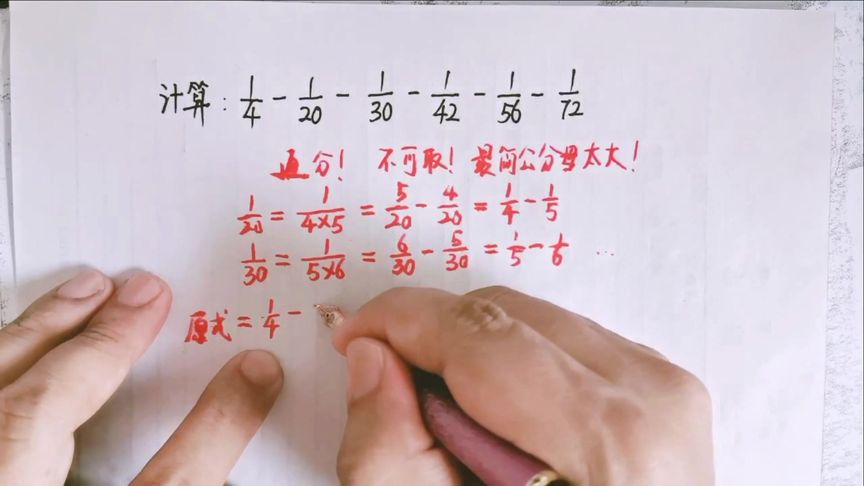 计算: 1/4 - 1/20 - 1/30 - 1/42 - 1/56 - 1/72
通分! 不可取! 最简公分母太大!
1/20 = 1/4×5 = 5/20 - 4/20 = 1/4 - 1/5
1/30 = 1/5×6 = 6/30 - 5/30 = 1/5 - 1/6 ...
原式 = 1/4 -